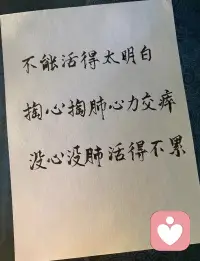 不能活得太明白
掏心掏肺心力交瘁
没心没肺活得不累